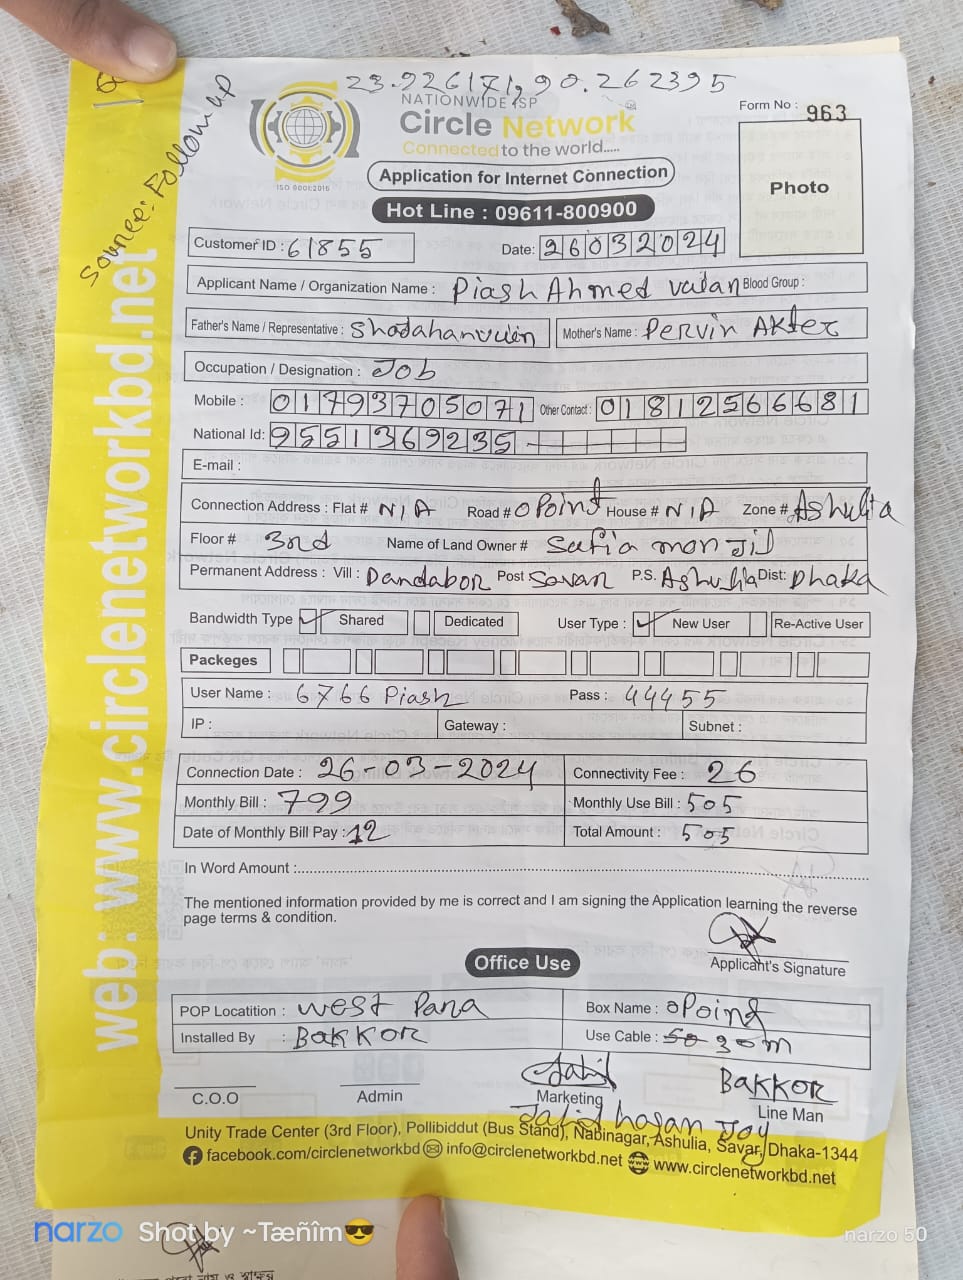 23.926171, 90.262395
Source: Follow up
NATIONWIDE ISP
Circle Network
Connected to the world.....
ISO 9001:2015
Form No : 963
Photo
Application for Internet Connection
Hot Line : 09611-800900
Customer ID : 61855
Date: 26032024
Applicant Name / Organization Name : Piash Ahmed Blood Group :
Father's Name / Representative : Mother's Name : Pervin Akter
Occupation / Designation : Job
Mobile : 01793705071 Other Contact : 01812566681
National Id: 9551369235
E-mail :
Connection Address : Flat # N/A Road # 0 Point House # N/A Zone # Ashulia
Floor # 3rd Name of Land Owner # Safia monjil
Permanent Address : Vill : Dandabor Post Savar P.S. Ashulia Dist: Dhaka
Bandwidth Type Shared Dedicated User Type : New User Re-Active User
Packeges
User Name : 6766 Piash Pass : 44455
IP : Gateway : Subnet :
Connection Date : 26-03-2024 Connectivity Fee : 26
Monthly Bill : 799 Monthly Use Bill : 505
Date of Monthly Bill Pay : 12 Total Amount : 505
In Word Amount :
The mentioned information provided by me is correct and I am signing the Application learning the reverse
page terms & condition.
Applicant's Signature
Office Use
POP Locatition : West Para Box Name : 0 Point
Installed By : BAKKOR Use Cable : 50 30m
C.O.O Admin Marketing BAKKOR
Line Man
Jahid hasan Joy
Unity Trade Center (3rd Floor), Pollibiddut (Bus Stand), Nabinagar, Ashulia, Savar, Dhaka-1344
facebook.com/circlenetworkbd info@circlenetworkbd.net www.circlenetworkbd.net
web: www.circlenetworkbd.net
narzo Shot by ~Tæñîm😎
narzo 50